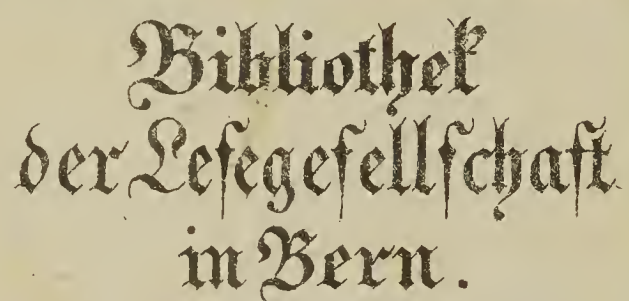 Bibliothek
der Leſegeſellſchaft
in Bern.